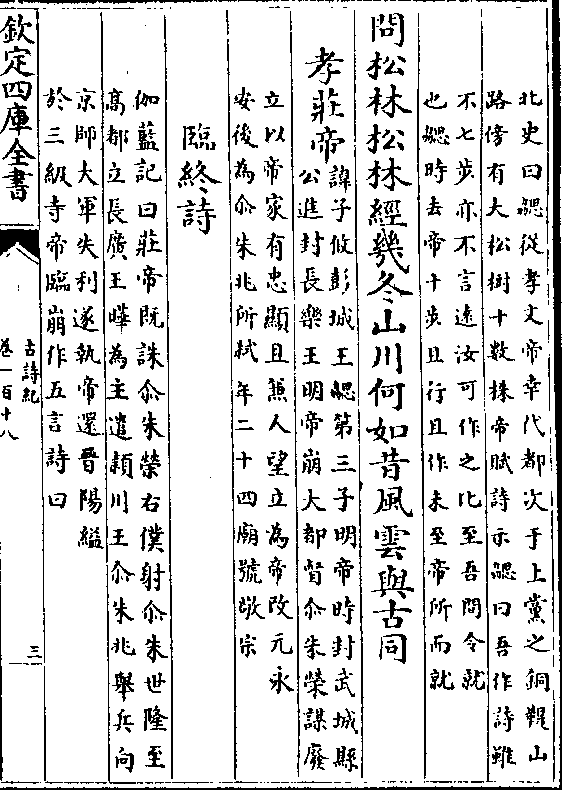 北史曰勰從孝文帝幸代都次于上黨之銅鞮山
路傍有大松樹十數株帝賦詩示勰曰吾作詩雖
不七步亦不言遠汝可作之比至吾間令就
也勰時去帝十步且行且作未至帝所而就
問松林松林經幾冬山川何如昔風雲與古同
孝莊帝
諱子攸彭城王勰第三子明帝時封武城縣
公進封長樂王明帝崩大都督尒朱榮謀廢
立以帝家有忠顯且兼人望立為帝改元永
安後為尒朱兆所弑年二十四廟號敬宗
臨終詩
伽藍記曰莊帝既誅尒朱榮右僕射尒朱世隆至
高都立長廣王曄為主遣潁川王尒朱兆舉兵向
京師大軍失利遂執帝還晉陽縊
於三級寺帝臨崩作五言詩曰
欽定四庫全書
古詩紀
卷一百十八
三